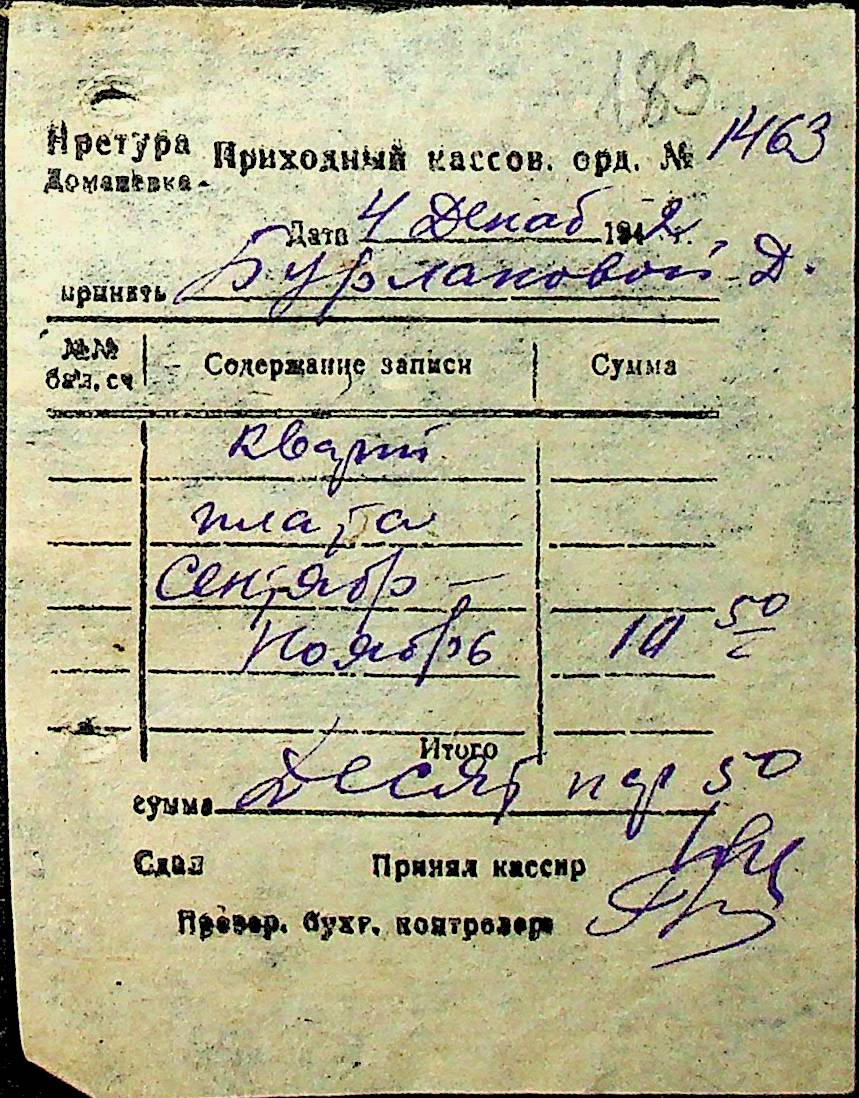 183
Претура Приходный кассов. орд. № 1463
Доманевка
Дата 4 Декаб 1942 г.
принять Бурлаковой Д.
№№ бал. сч Содержание записи Сумма
кварт
плата
Сентябр —
Ноябрь 10 50
Итого
сумма Десят пф 50
Сдал Принял кассир
Провер. бухг. контролер